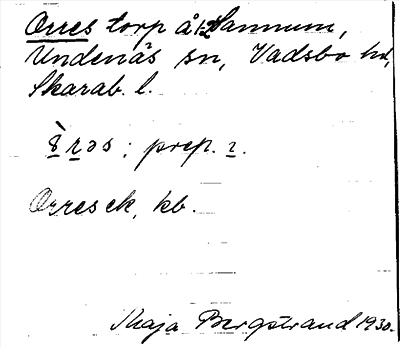 Orres torp å Sannum,
Undenäs sn, Vadsbo hd,
Skarab. l.
prep. 2.
Orresek, kb.
Maja Bergstrand 1930.